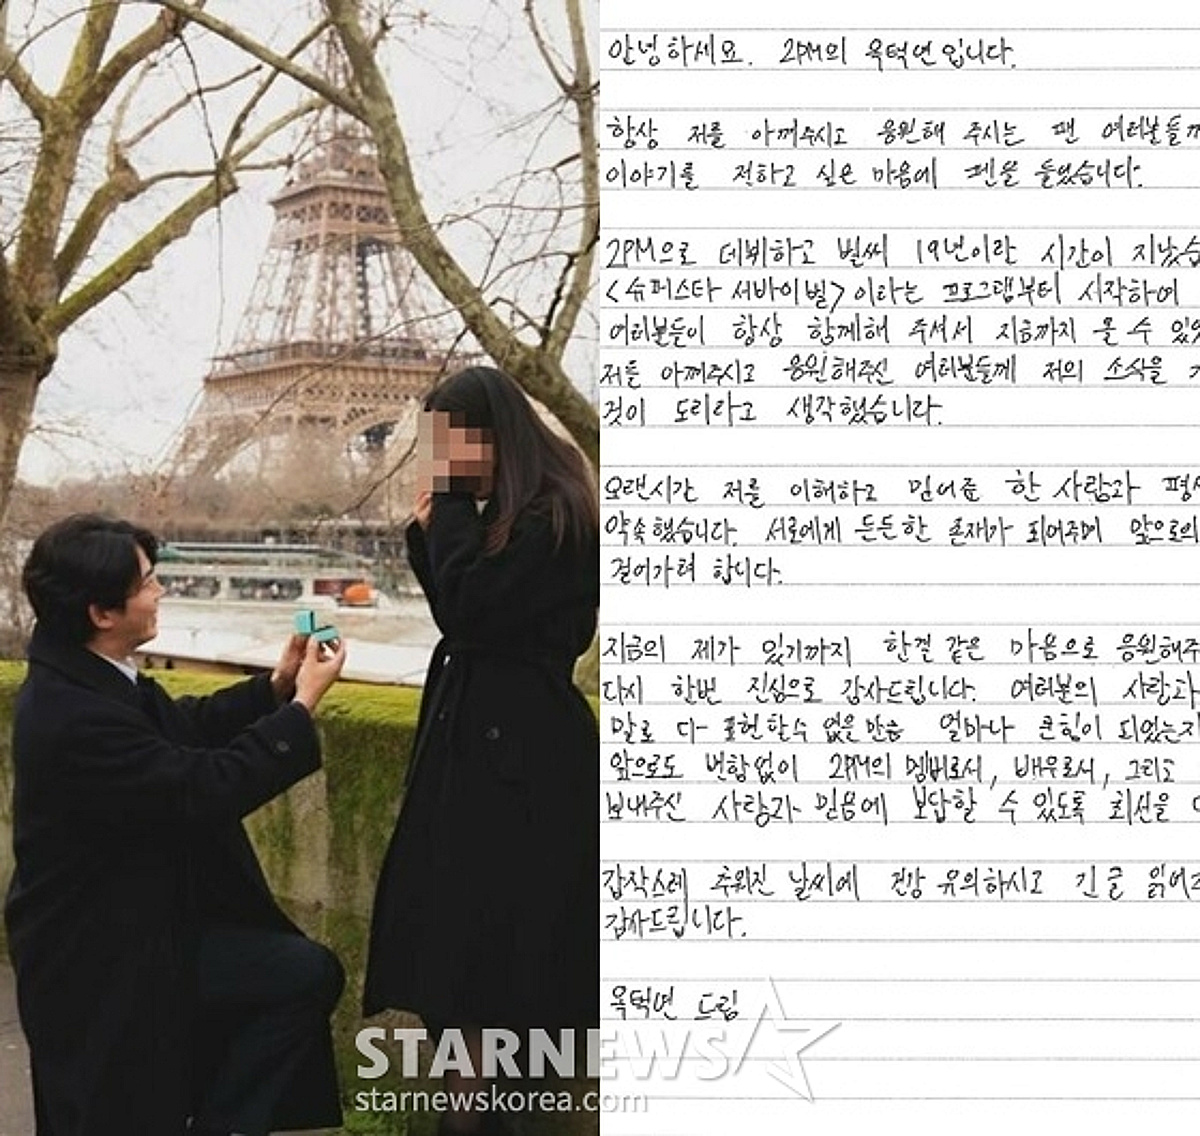 안녕하세요. 2PM의 옥택연입니다.
항상 저를 아껴주시고 응원해 주시는 팬 여러분들께
이야기를 전하고 싶은 마음에 펜을 들었습니다.
2PM으로 데뷔하고 벌써 19년이란 시간이 지났습
<슈퍼스타 서바이벌>이라는 프로그램부터 시작하여
여러분들이 항상 함께해 주셔서 지금까지 올 수 있었
저를 아껴주시고 응원해주신 여러분들께 저의 소식을
것이 도리라고 생각했습니다.
오랜시간 저를 이해하고 믿어준 한 사람과 평생
약속했습니다. 서로에게 든든한 존재가 되어주며 앞으로의
걸어가려 합니다.
지금의 제가 있기까지 한결 같은 마음으로 응원해주
다시 한번 진심으로 감사드립니다. 여러분의 사랑과
말로 다 표현할수 없을만큼 얼마나 큰힘이 되었는지
앞으로도 변함없이 2PM의 멤버로서, 배우로서, 그리고
보내주신 사랑과 믿음에 보답할 수 있도록 최선을 다
갑작스레 추워진 날씨에 건강 유의하시고 긴 글 읽어주
감사드립니다.
옥택연 드림
STARNEWS
starnewskorea.com